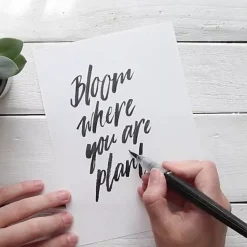 Bloom
where
you are
plant